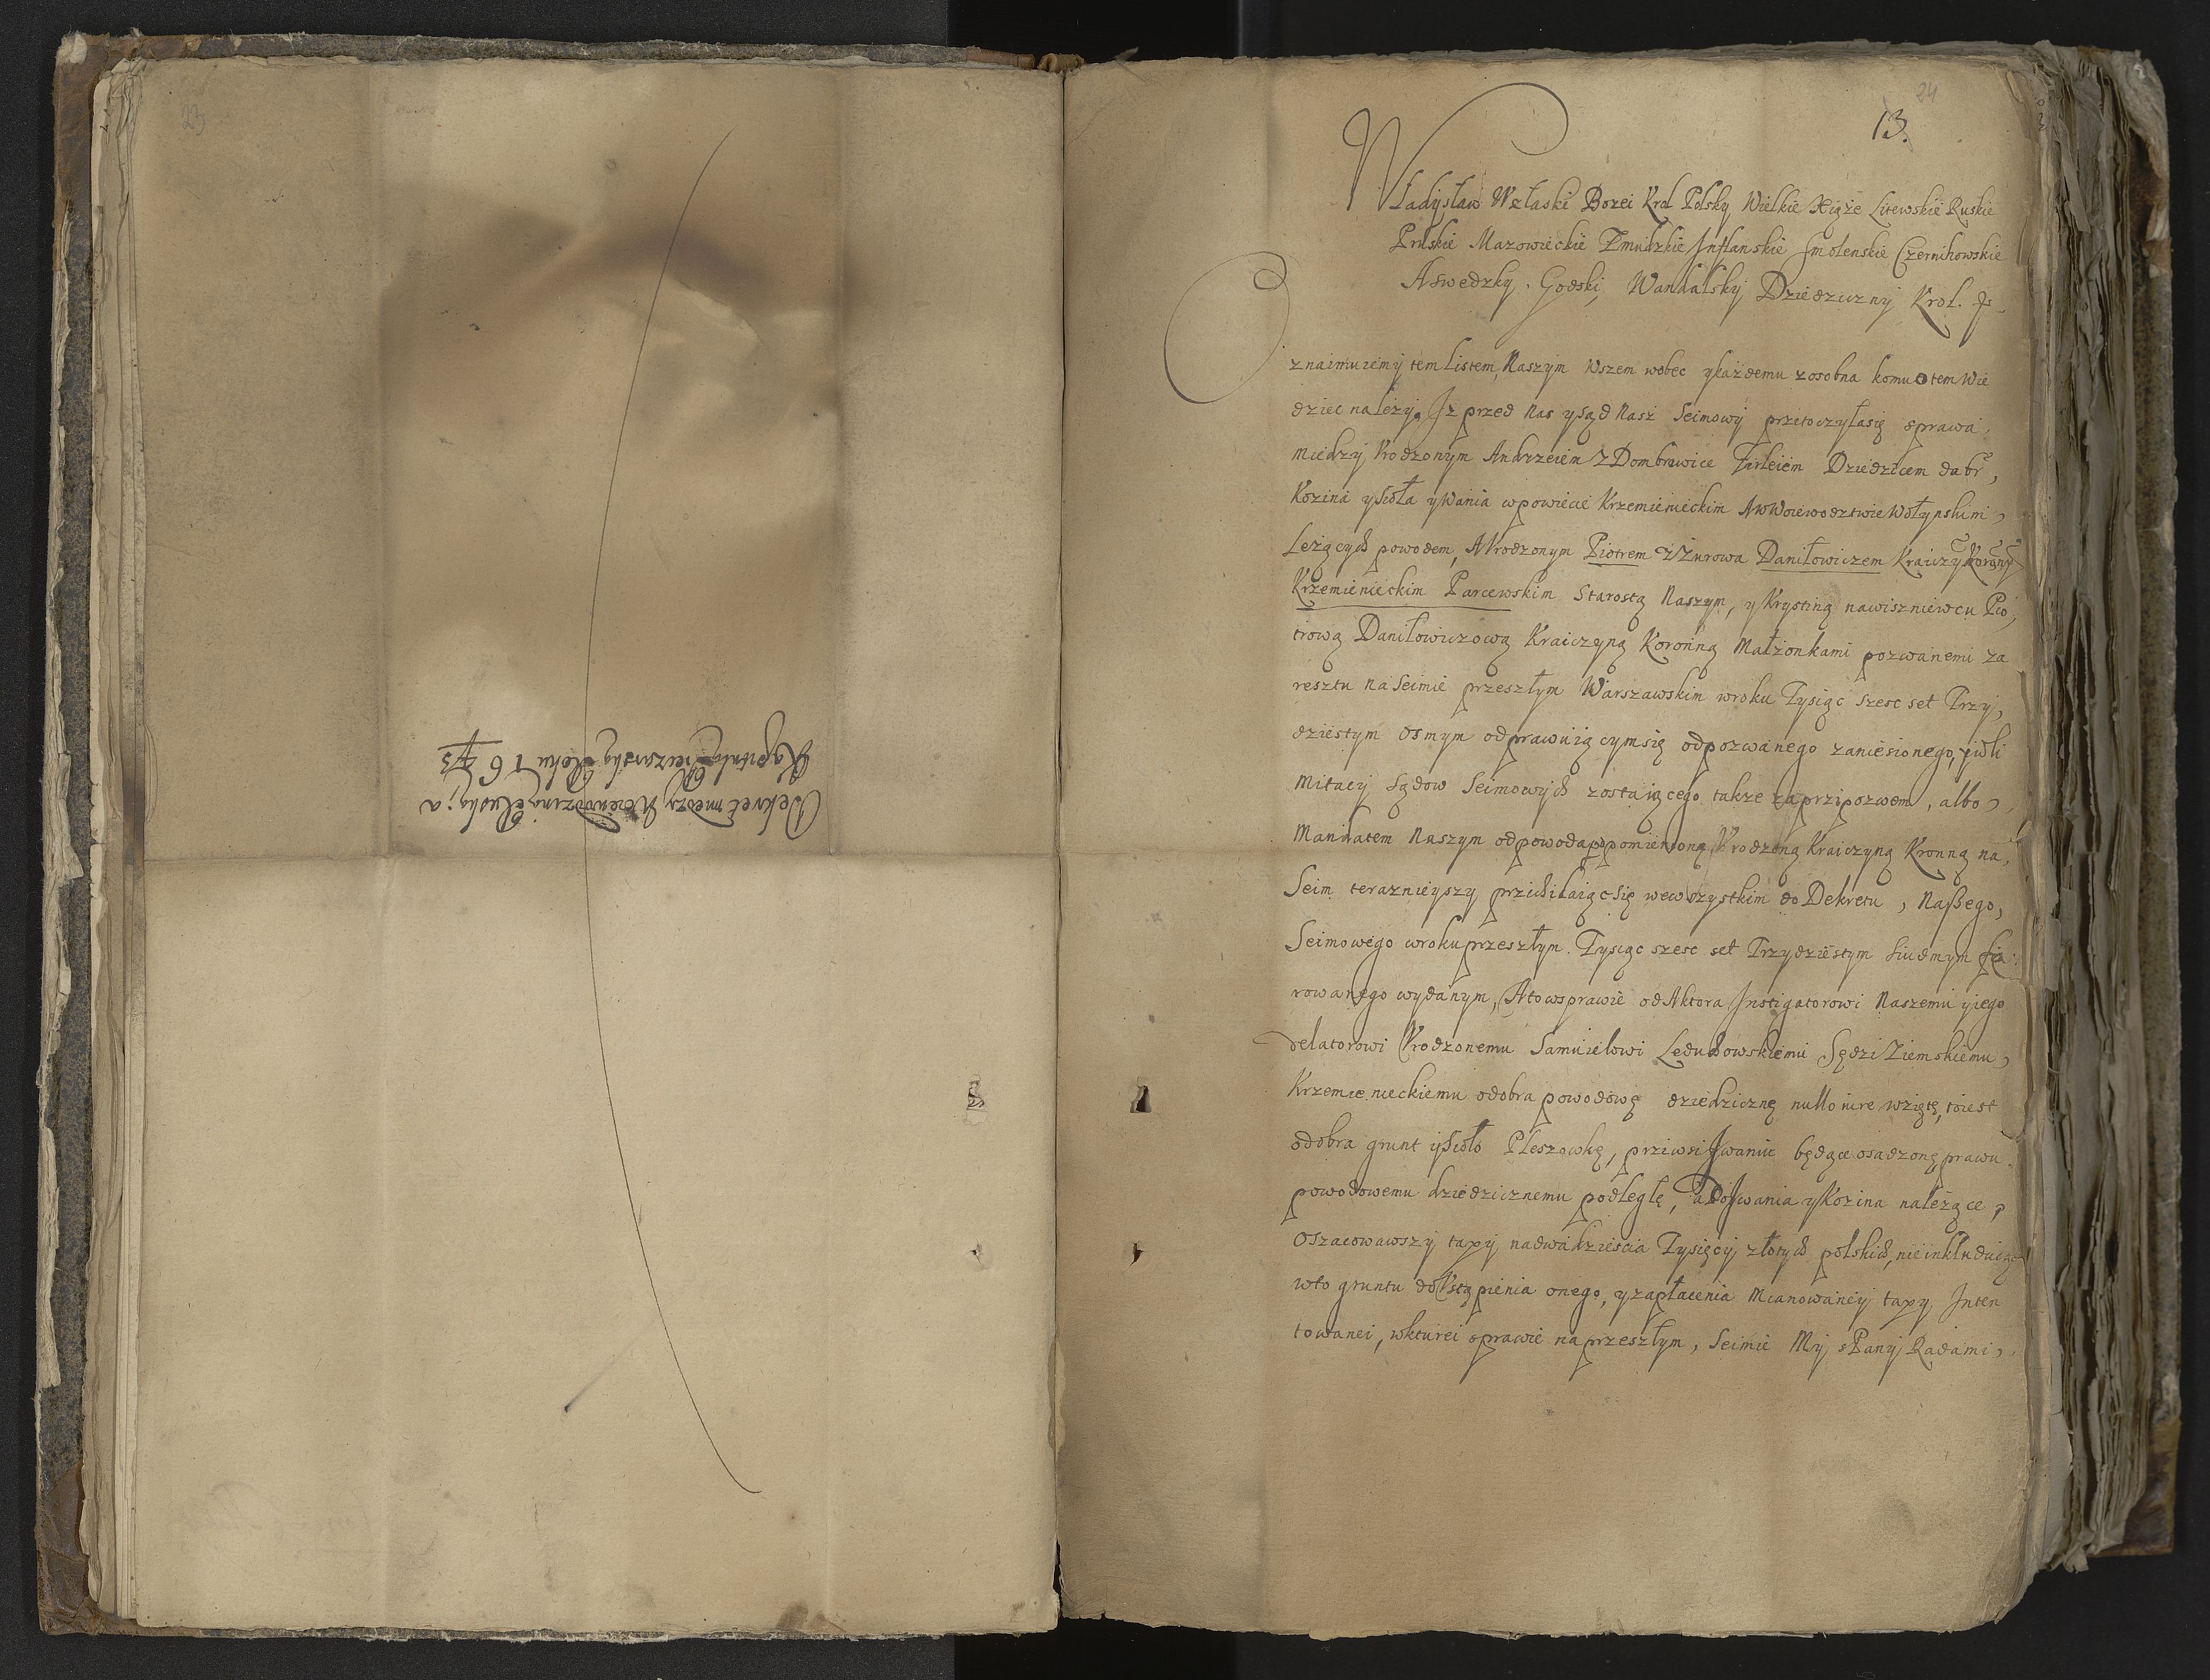 23
Dekret między Woiewodziną Ruską a
Kapitułą Roku 1643
24
13.
Władysław Wzłaski Bozei Krol Polsky Wielkie Xiąże Litewskie Ruskie
Pruskie Mazowieckie Zmudzkie Inflanskie Smolenskie Czernihowskie
A Swedzky, Godski, Wandalsky Dziedziczny Krol.
Oznaimuiemy tem Listem Naszym wszem wobec y każdemu zosobna komu o tem Wie
dziec należy, Iz przed Nas y sąd Nasz Seimowy przitoczyłasię sprawa,
między Urodzonym Andrzeiem Z Dombrowice Tarłeiem Dziedzicem dobr,
Kozina y sioła ywania w powiecie Krzemienieckim A w Woiewodztwie Wołynskim
Leżących powodem, A Urodzonym Piotrem z Żurowa Daniłowiczem Kraiczy Korony
Krzemienieckim Parcewskim Starostą Naszym, y Krystiną na wiszniewcu Pio,
trową Daniłowiczową Kraiczyną Koronną Małżonkami pozwanemi za
resztu na Seimie przeszłym Warszawskim w roku Tysiąc szesc set Trzy,
dziestym osmym odprawuią cymsię od pozwanego zaniesionego, y idli
mitacy Sądow Seimowych zostaiącego także za przipozwem, albo
Mandatem Naszym od powoda po pomienioną Urodzoną Kraiczyną Kronną na,
Seim teraznieyszy przichilaiąc się we wszystkim do Dekretu, Naszego,
Seimowego w roku przeszłym Tysiąc szesc set Trzydziestym siudmym fe
rowanego wydanym, A to w sprawie od Aktora Instigatorowi Naszemu y iego
delatorowi Urodzonemu Samuielowi Leduchowskiemu Sędzi Ziemskiemu,
Krzemienieckiemu o dobra powodowę dziedzicznę nullo iure wziętę, to iest
o dobra grunt y sioło Pleszowkę, przi wsi Iwaniu będące osadzonę prawu
powodowemu dziedzicznemu podległę, a do Iwania y Kozina należące,
oszacowawszy taxy na dwadziescia Tysięcy złotych polskich, nie inkluduiąc
w to gruntu do Ustąpienia onego, y zapłacenia mianowaney taxy Inten
towanei, w kturei sprawie na przeszłym, Seimie My s Pany Radami,